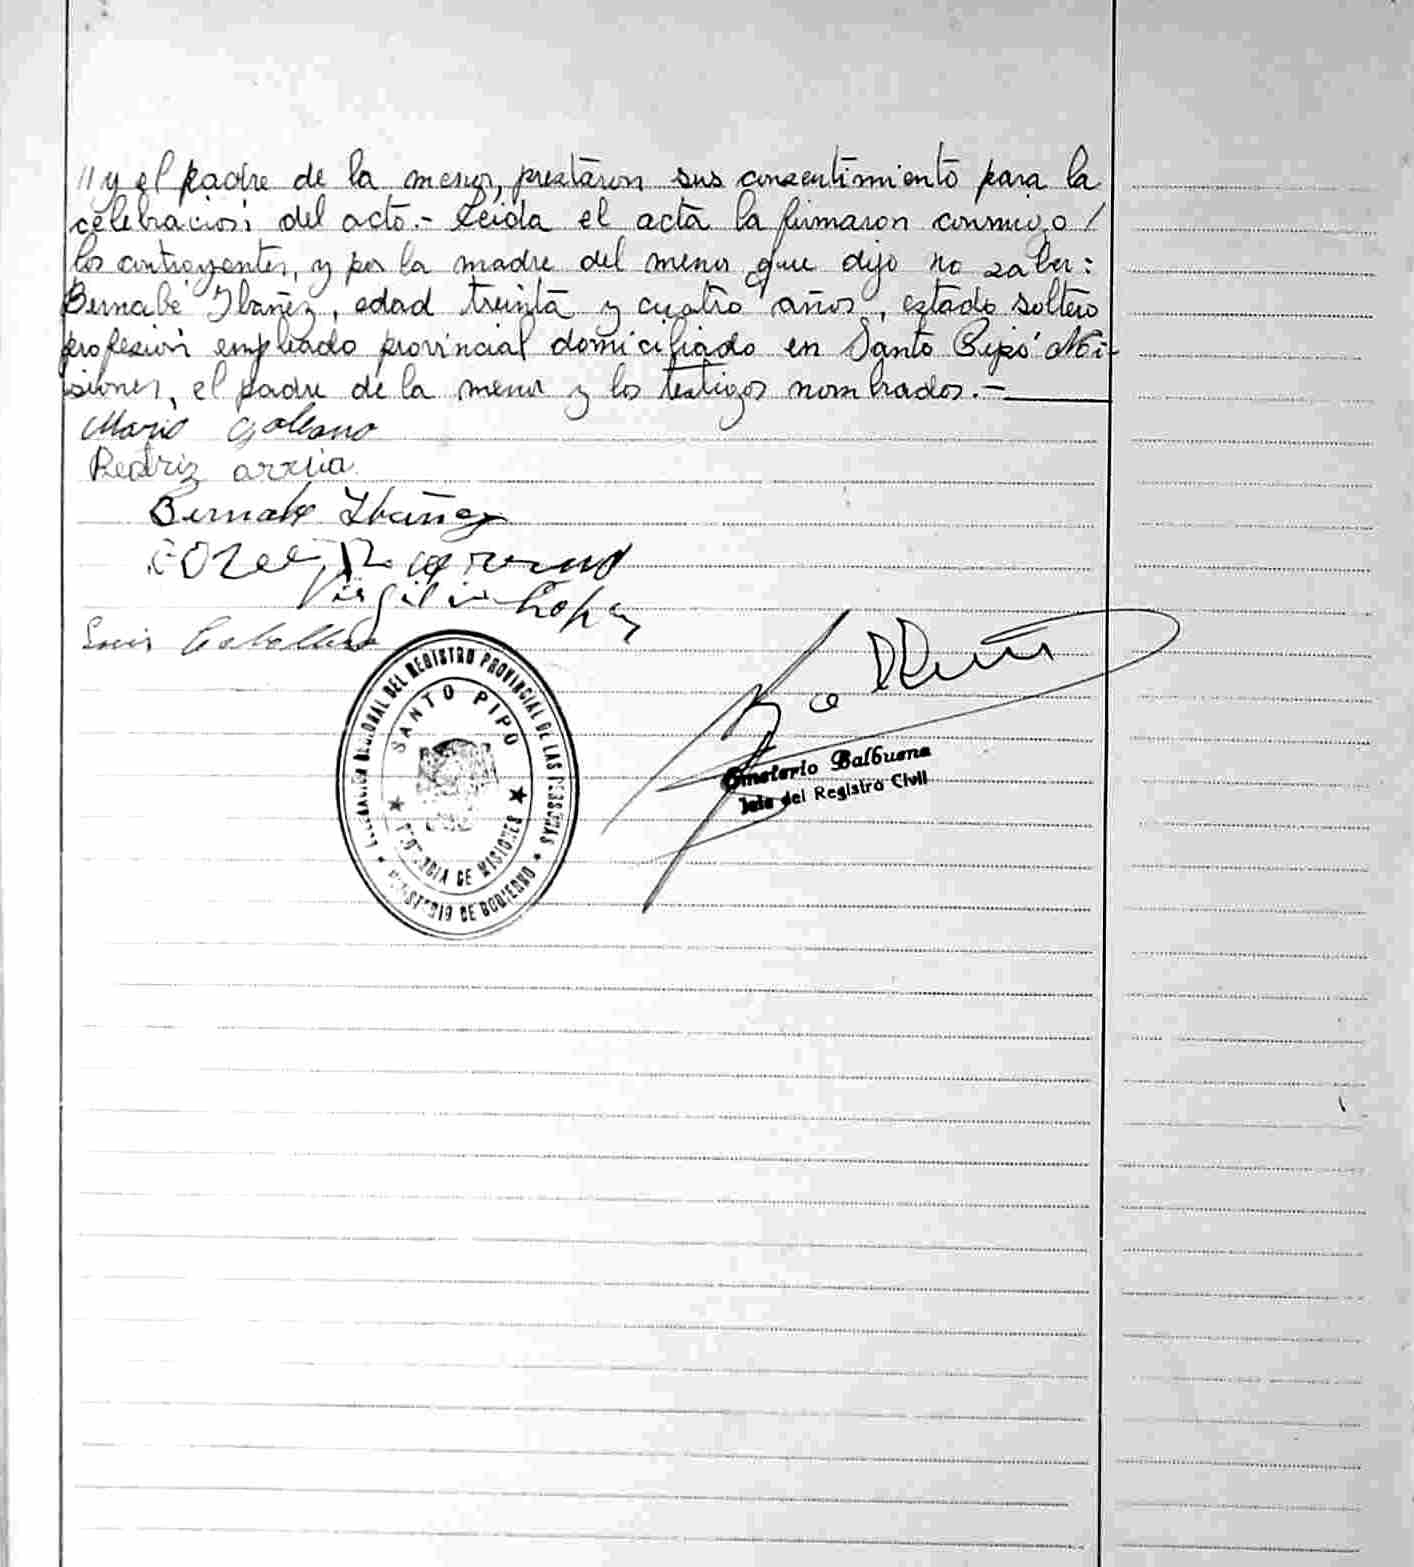 // y el padre de la menor, prestaron sus consentimiento para la
celebración del acto.- Leida el acta la firmaron conmigo /
los contrayentes, y por la madre del menor que dijo no saber:
Bernabé Ibañez, edad treinta y cuatro años, estado soltero
profesión empleado provincial domiciliado en Santo Pipó Mi-
siones, el padre de la menor y los testigos nombrados.-
Mario Galeano
Beatriz arrua
Bernabe Ibáñez
Virgilio Lopez
Luis Caballero
DELEGACIÓN REGIONAL DEL REGISTRO PROVINCIAL DE LAS PERSONAS
SANTO PIPO
PROVINCIA DE MISIONES
MINISTERIO DE GOBIERNO
Emeterio Balbuena
Jefe del Registro Civil